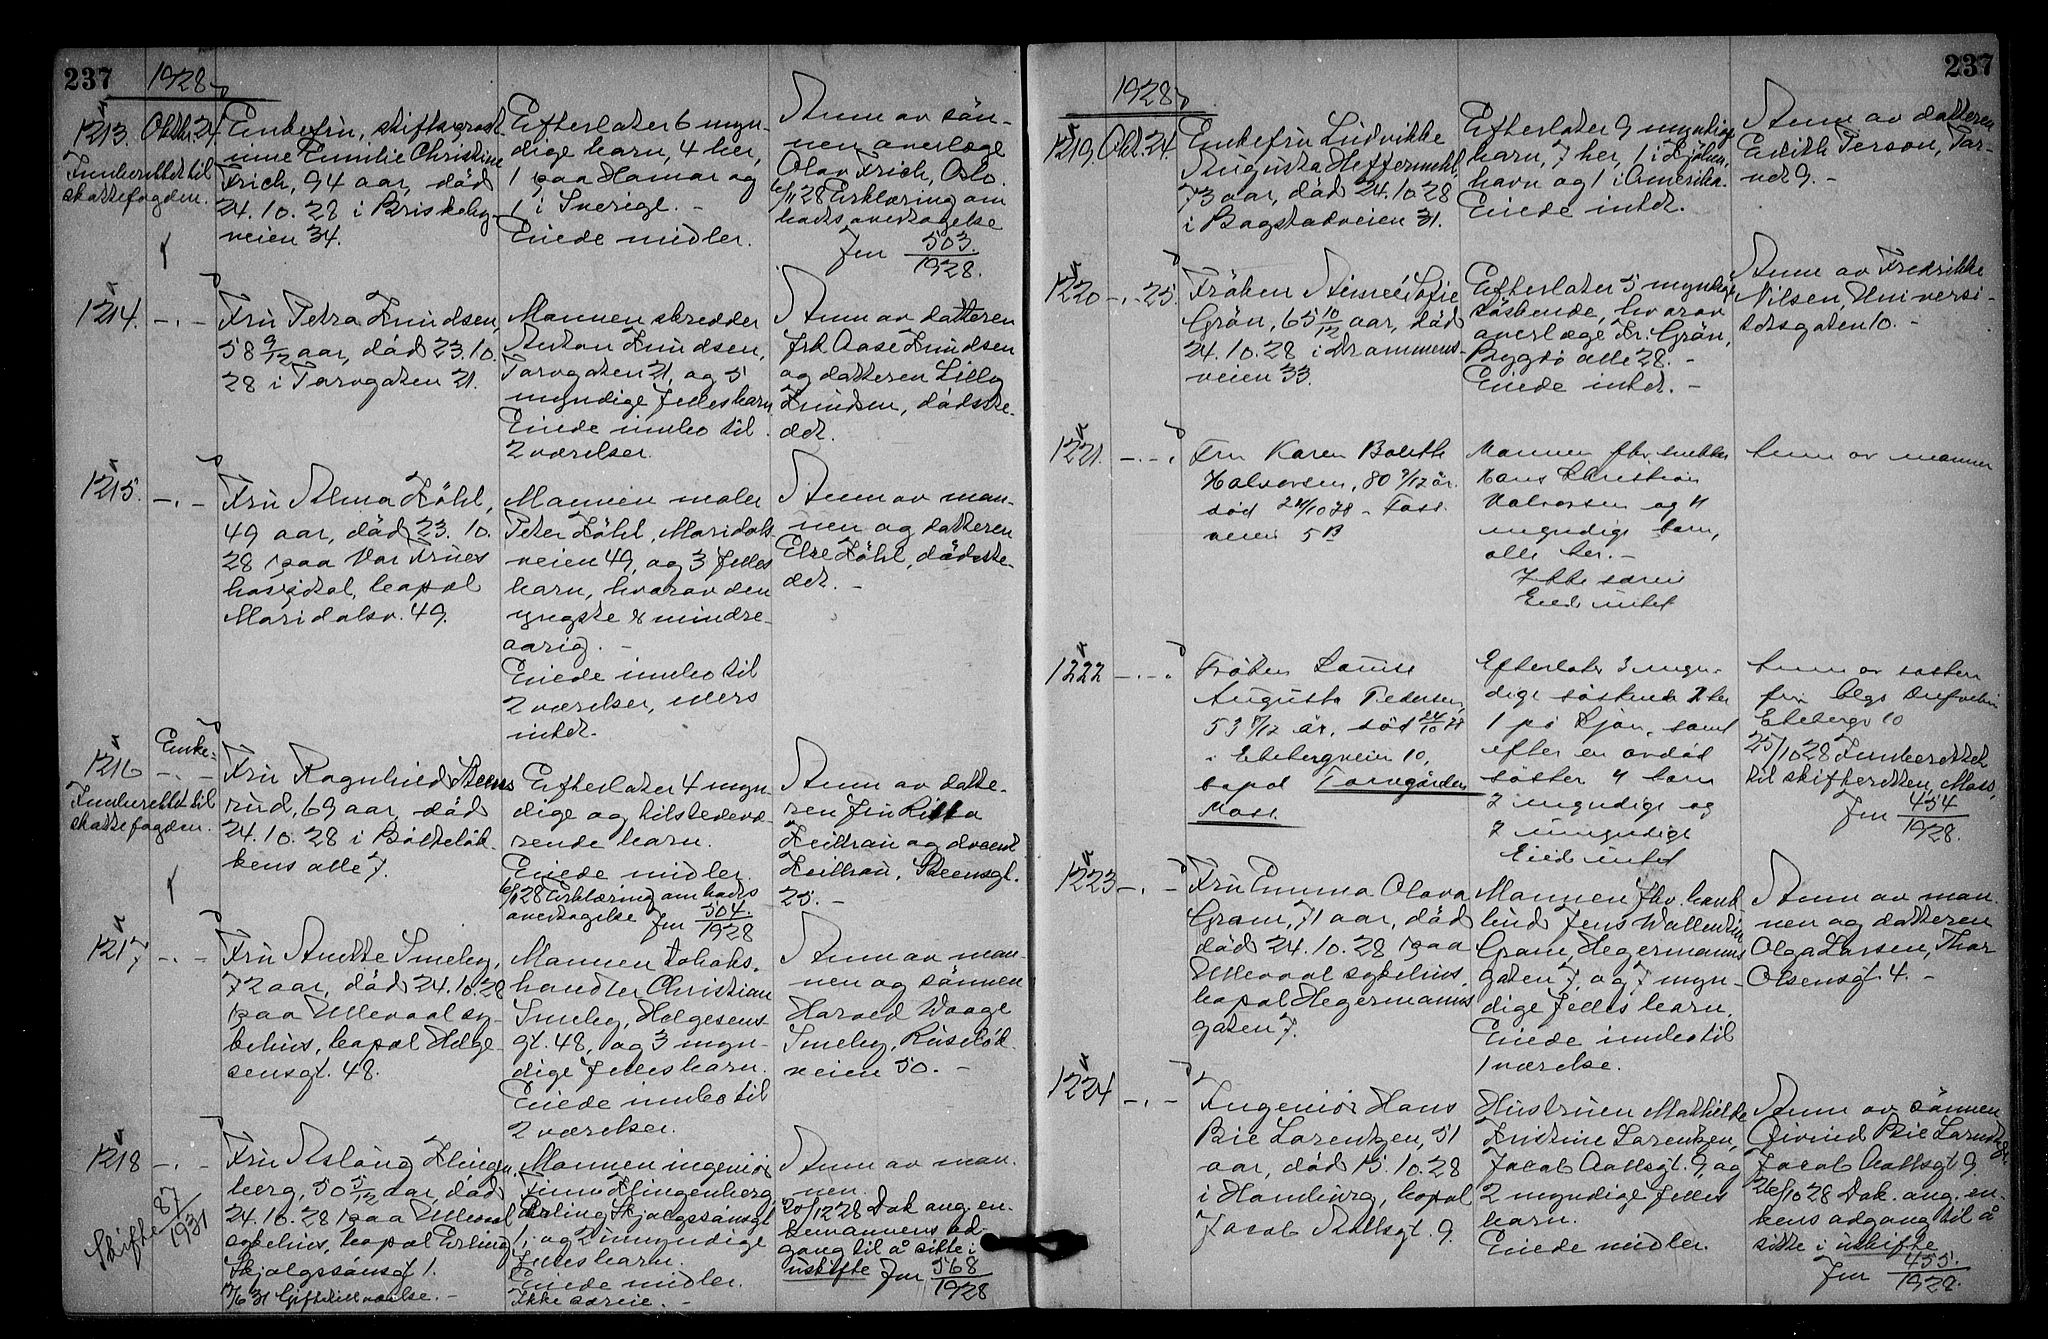 237
1928
1213. Oktbr. 24.
Indberettet til
skattefogden.
Enkefru, stiftsprost-
inne Emilie Christine
Frich, 94 aar, död
24.10.28 i Briskeby-
veien 34.
Efterlater 6 myn-
dige barn, 4 her,
1 paa Hamar og
1 i Sverige. -
Eiede midler.
Anm av sön-
nen overlæge
Olav Frich, Oslo.
6/11 28 Erklæring om
bads overtagelse
Jnr 503/1928.
1214. -.-
Fru Petra Knudsen,
58 9/12 aar, död 23.10.
28 i Torvgaten 21.
Mannen skredder
Anton Knudsen,
Torvgaten 21, og 5
myndige felles barn
Eiede innbo til
2 værelser.
Anm av datteren
frk Aase Knudsen
og datteren Lilly
Knudsen, dödste-
det.
1215. -.-
Fru Alma Köhl,
49 aar, död 23.10.
28 paa Vor Frues
hospital, bopæl
Maridalsv. 49.
Mannen maler
Peter Köhl, Maridals-
veien 49, og 3 felles
barn, hvorav den
yngste er mindre-
aarig. -
Eiede innbo til
2 værelser, ellers
intet.
Anm av man-
nen og datteren
Else Köhl, dödste-
det. -
1216 -.-
Indberettet til
skattefogden.
Enke-
Fru Ragnhild Steens
rud, 69 aar, död
24.10.28 i Bölteløk-
kens alle 7.
Efterlater 4 myn
dige og tilstedevæ
rende barn.
Eiede midler.
6/11 28 Erklæring om bads
overtagelse Jnr 504/1928
Anm av datte-
ren fru
Keilhau og docent
Keilhau, Steensgt.
25. -
1217 -.-
Fru Anette Smeby,
72 aar, död 24.10.28
paa Ullevaal sy-
kehus, bopæl Helge-
sensgt. 48.
Mannen tobaks-
handler Christian
Smeby, Helgesens-
gt. 48, og 3 myn-
dige felles barn.
Eiede innbo til
2 værelser.
Anm av man-
nen og sönnen
Harald Waage
Smeby, Ruselök-
veien 50. -
1218 -.-
Skifte 87/1931
Fru Aslaug Klingen-
berg, 50 5/12 aar, död
24.10.28 paa Ullevaal
sykehus, bopæl Erling
Skjalgssönsgt 1.
Mannen ingeniör
Finn Klingenberg,
Erling Skjalgssönsgt
1, og 2 umyndige
felles barn.
Eiede midler.
Ikke særeie. -
Anm av man-
nen.
20/12 28 Dok ang. en-
kemannens ad-
gang til å sitte i
uskifte Jnr 568/1928
237
1928
1219. Okt. 24.
Enkefru Ludvikke
Augusta Heffermehl,
73 aar, död 24.10.28
i Bogstadveien 31.
Efterlater 9 myndige
barn, 7 her, 1 i Kjöben-
havn og 1 i Amerika.
Eiede intet.
Anm av datteren
Edith Person, Tor-
vet 9. -
1220 -.- 25.
Fröken Aimeé Sofie
Grön, 65 10/12 aar, död
24.10.28 i Drammens-
veien 33.
Efterlater 5 myndige
söskende, hvorav
overlæge Kr. Grön,
Bygdö alle 28. -
Eiede intet. -
Anm av Fredrikke
Nilsen, Universi-
tetsgaten 10. -
1221. -.-
Fru Karen Bolette
Halvorsen, 80 9/12 år.
död 24/10 28 - Foss-
veien 5 B
Mannen fhv. snekker
Hans Christian
Halvorsen og 4
myndige barn,
alle her. -
Ikke særeie
Eied intet
Anm av mannen
1222 -.-
Fröken Louise
Augusta Pedersen,
53 8/12 år, död 24/10 28
i Ekebergveien 10,
bopæl Torvgården
Moss.
Efterlater 3 myn-
dige söskende 2 her
1 på Kjøn, samt
efter en avdöd
söster 4 barn
2 myndige og
2 umyndige
Eied intet
Anm av söster
fru
Ekebergv 10
25/10 28 Innberettet
til skifteretten, Moss,
Jnr 454/1928.
1223 -.-
Fru Emma Olava
Gram, 71 aar, död
död 24.10.28 paa
Ullevaal sykehus,
bopæl Hegermanns
gaten 7.
Mannen fhv. hand
lende Jens Wallentin
Gram, Hegermanns
gaten 7, og 7 myn-
dige felles barn.
Eiede innbo til
1 værelse.
Anm av man
nen og datteren
Olga Larsen, Thor
Olsensgt. 4. -
1224 -.-
Ingeniör Hans
Bie Lorentzen, 51
aar, död 15.10.28
i Hamburg, bopæl
Jacob Aallsgt. 9.
Hustruen Mathilde
Kristine Lorentzen,
Jacob Aallsgt. 9, og
2 myndige felles
barn.
Eiede midler.
Anm av sönnen
Öivind Bie Lorentzen,
Jacob Aallsgt. 9
26/10 28 Dok. ang. en-
kens adgang til å
sitte i uskifte
Jnr 455/1928.